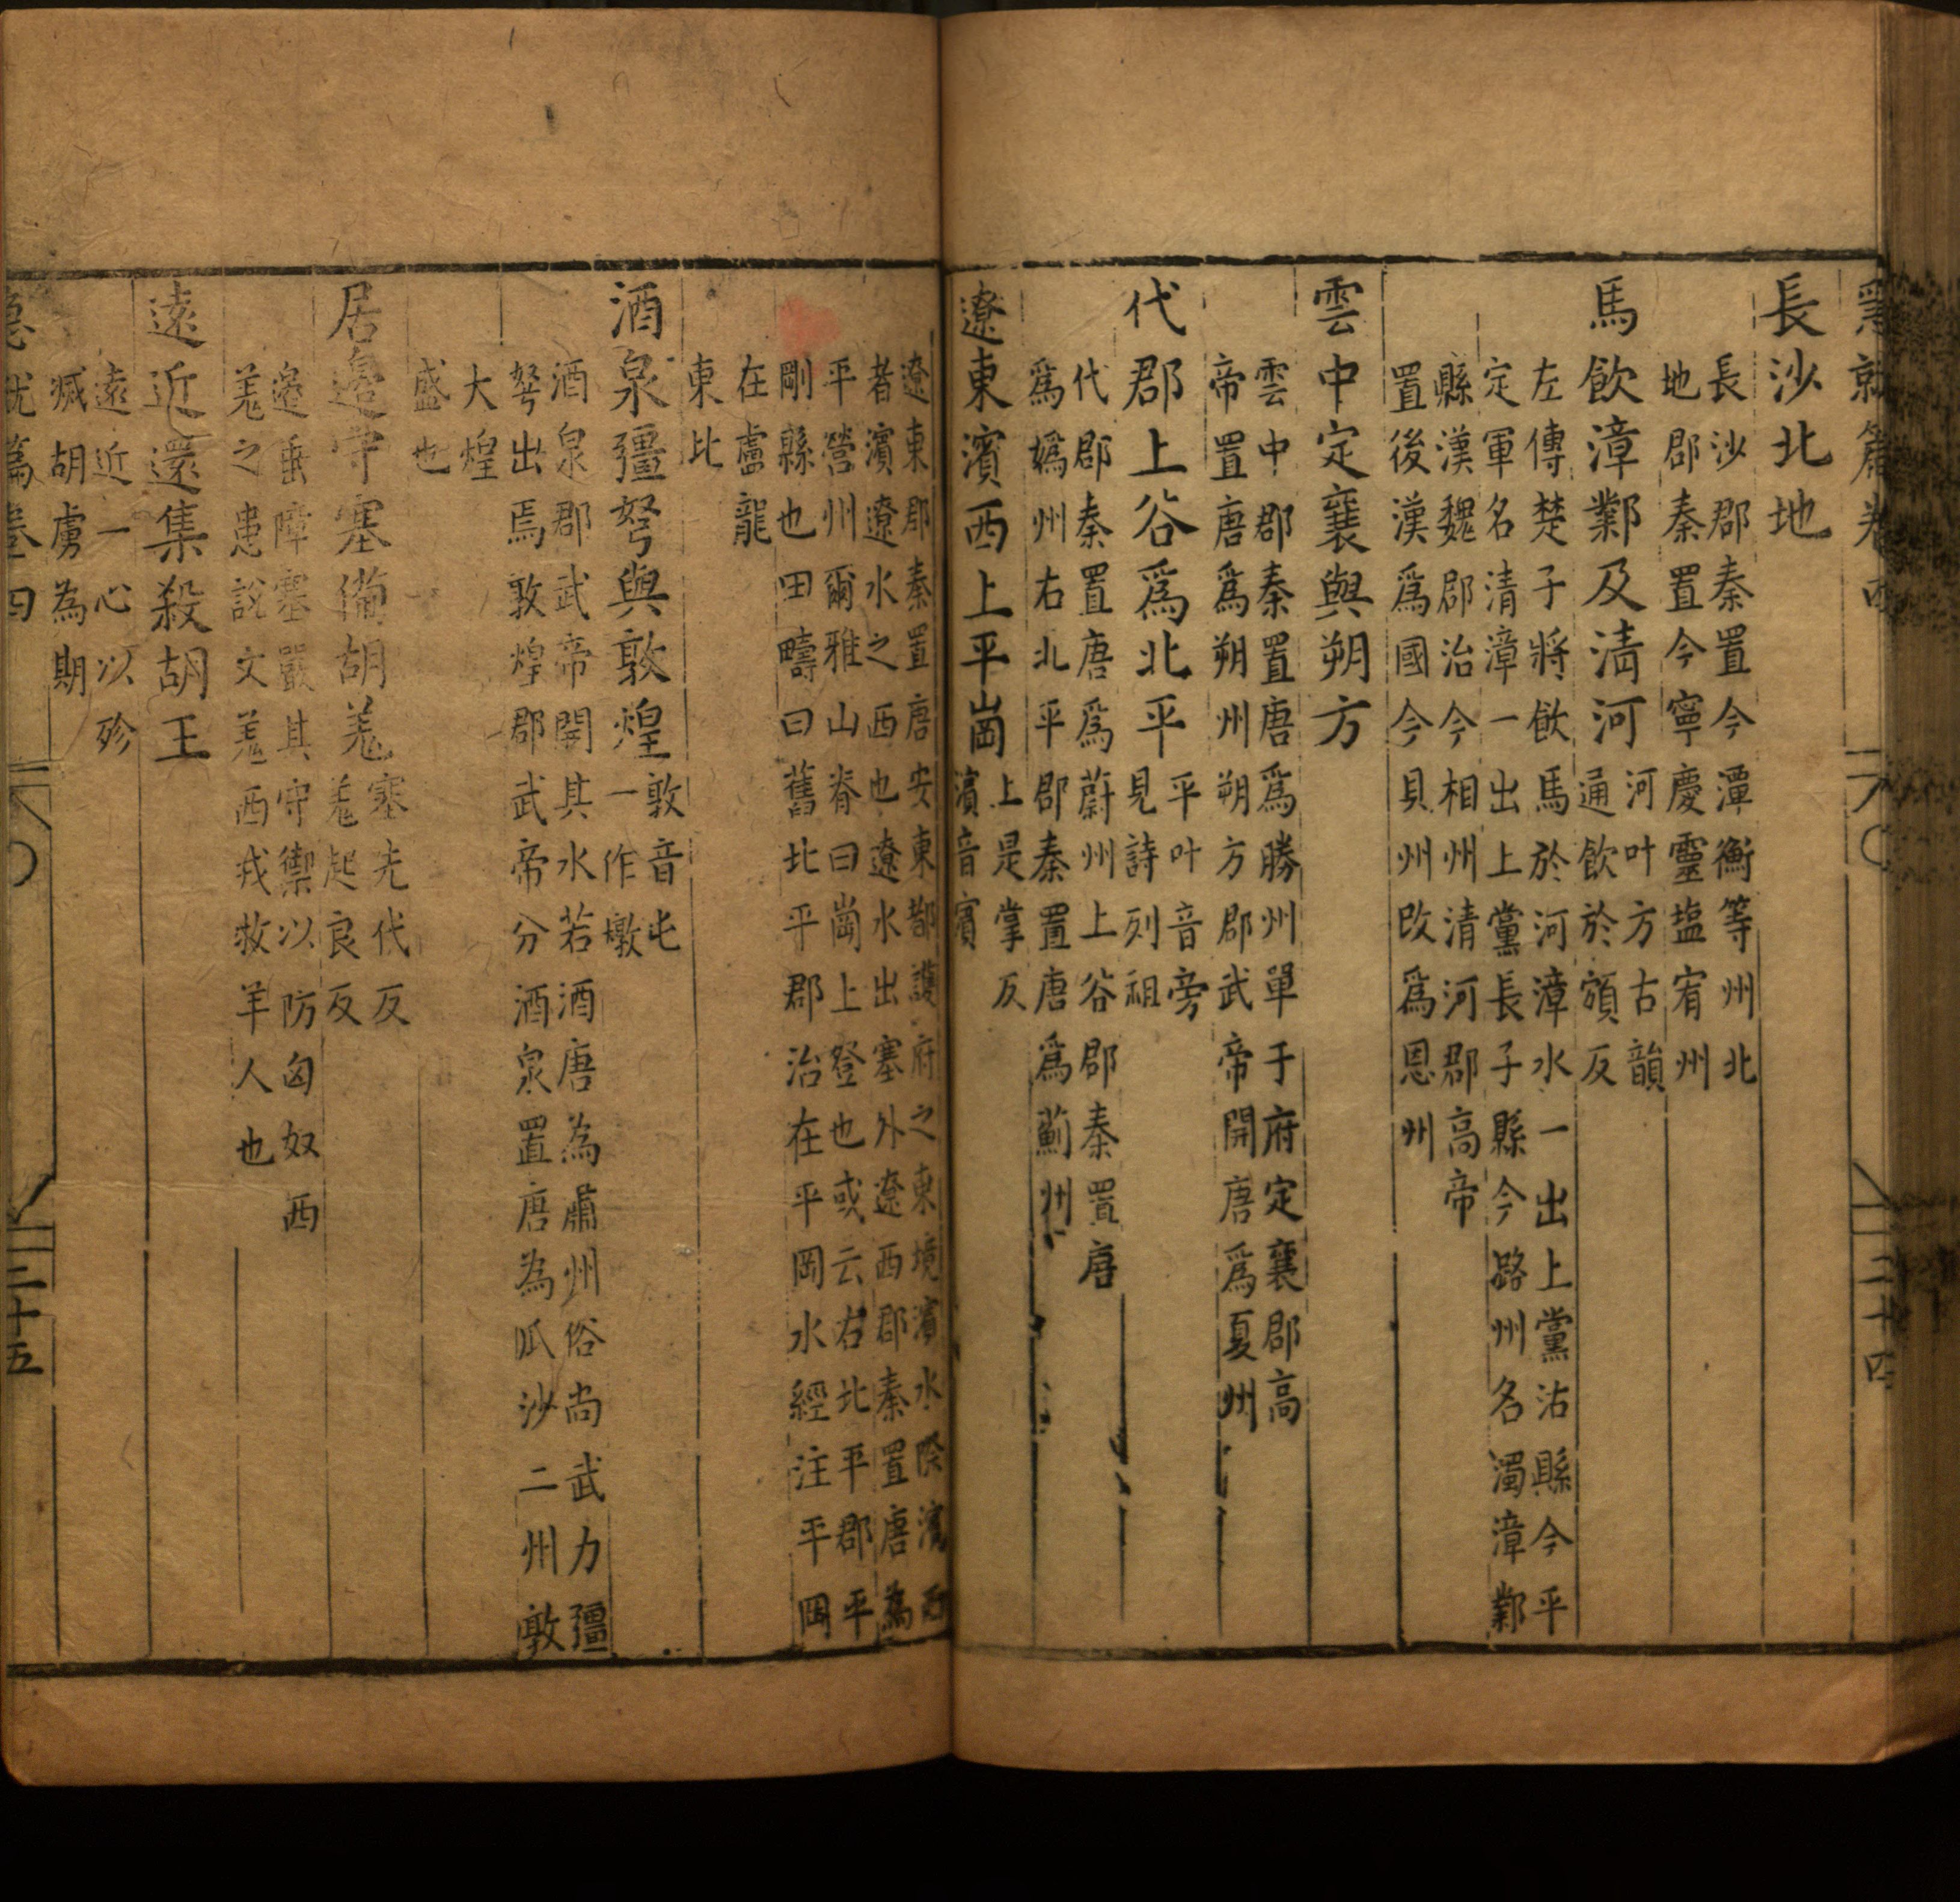 急就篇卷四
二十四
長沙北地
長沙郡秦置今潭衡等州北
地郡秦置今寧慶靈塩宥州
馬飲漳鄴及淸河
河叶方古韻
通飲於頟反
左傳楚子將飲馬於河漳水一出上黨沾縣今平
定軍名清漳一出上黨長子縣今路州名濁漳鄴
縣漢魏郡治今相州清河郡高帝
置後漢爲國今貝州改爲恩州
雲中定襄與朔方
雲中郡秦置唐爲勝州單于府定襄郡高
帝置唐爲朔州朔方郡武帝開唐爲夏州
代郡上谷爲北平
平叶音旁
見詩列祖
代郡秦置唐爲蔚州上谷郡秦置唐
爲嬀州右北平郡秦置唐爲薊州
遼東濱西上平崗
上是掌反
濱音賓
遼東郡秦置唐安東都護府之東境濱水際濱西
者濱遼水之西也遼水出塞外遼西郡秦置唐爲
平營州爾雅山脊曰崗上登也或云右北平郡平
剛縣也田疇曰舊北平郡治在平岡水經注平岡
在盧龍
東比
酒泉彊弩與敦煌
敦音屯
一作墩
酒泉郡武帝開其水若酒唐為肅州俗尚武力彊
弩出焉敦煌郡武帝分酒泉置唐為瓜沙二州敦
大煌
盛也
居邊守塞備胡羗
塞先代反
羗起良反
邊垂障塞嚴其守禦以防匈奴西
羗之患說文羗西戎牧羊人也
遠近還集殺胡王
遠近一心以殄
滅胡虜為期
急就篇卷四
二十五